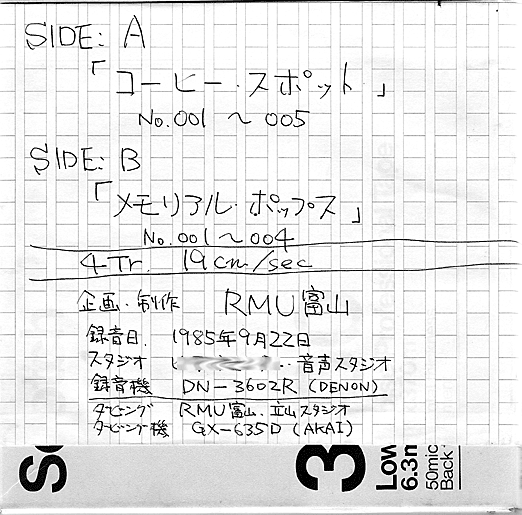 SIDE: A
「コーヒー・スポット・」
No.001 〜 005
SIDE: B
「メモリアル・ポップス」
No.001〜004
4Tr. 19cm/sec
企画・制作 RMU富山
録音日. 1985年9月22日
スタジオ 音声スタジオ
録音機 DN-3602R (DENON)
ダビング RMU富山.立山スタジオ
ダビング機 GX-635D (AKAI)
So
3
Low
6.3m
50mic
Back